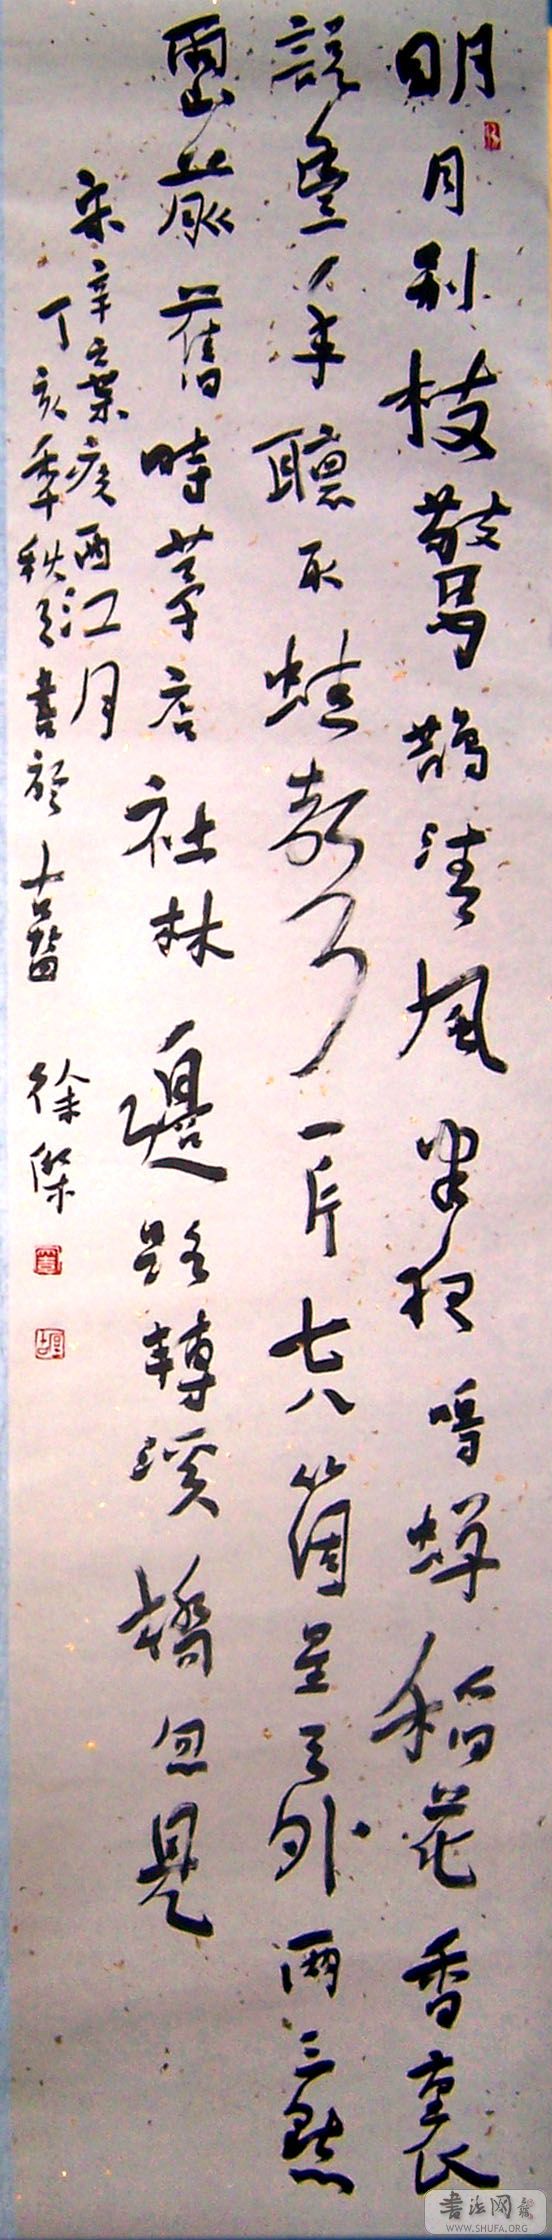 明月别枝驚鵲清風半夜鳴蝉稻花香裏
說豐年聽取蛙聲一片七八箇星天外兩三點
雨山前舊時茅店社林邊路轉溪橋忽見
宋辛棄疾西江月
丁亥年秋 書於古 徐傑
書法网
WWW.SHUFA.ORG